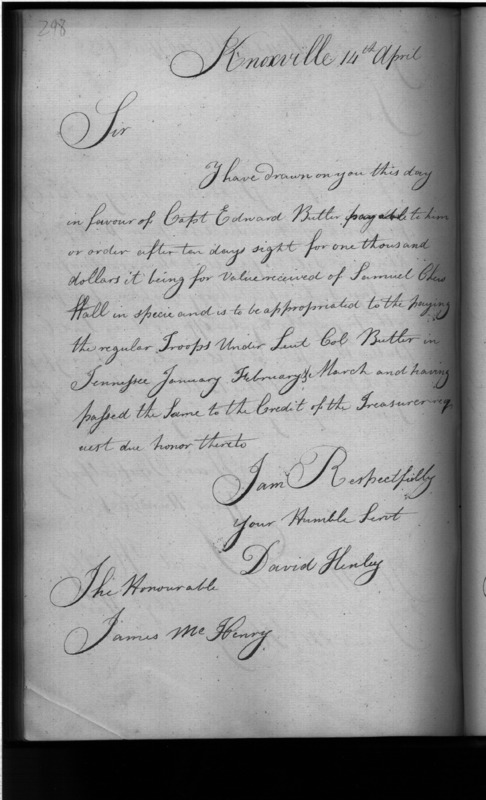 298
Knoxville 14th April
Sir
I have drawn on you this day
in favour of Capt Edward Butler payable to him
or order after ten days sight for one thousand
dollars it being for value received of Samuel Chew
Hall in specie and is to be appropriated to the paying
the regular Troops Under Leut Col Butler in
Tennessee January February & March and having
passed the Same to the Credit of the Treasurer req
uest due honor thereto
I am Respectfully
Your Humble Servt
David Henley
The Honourable
James McHenry